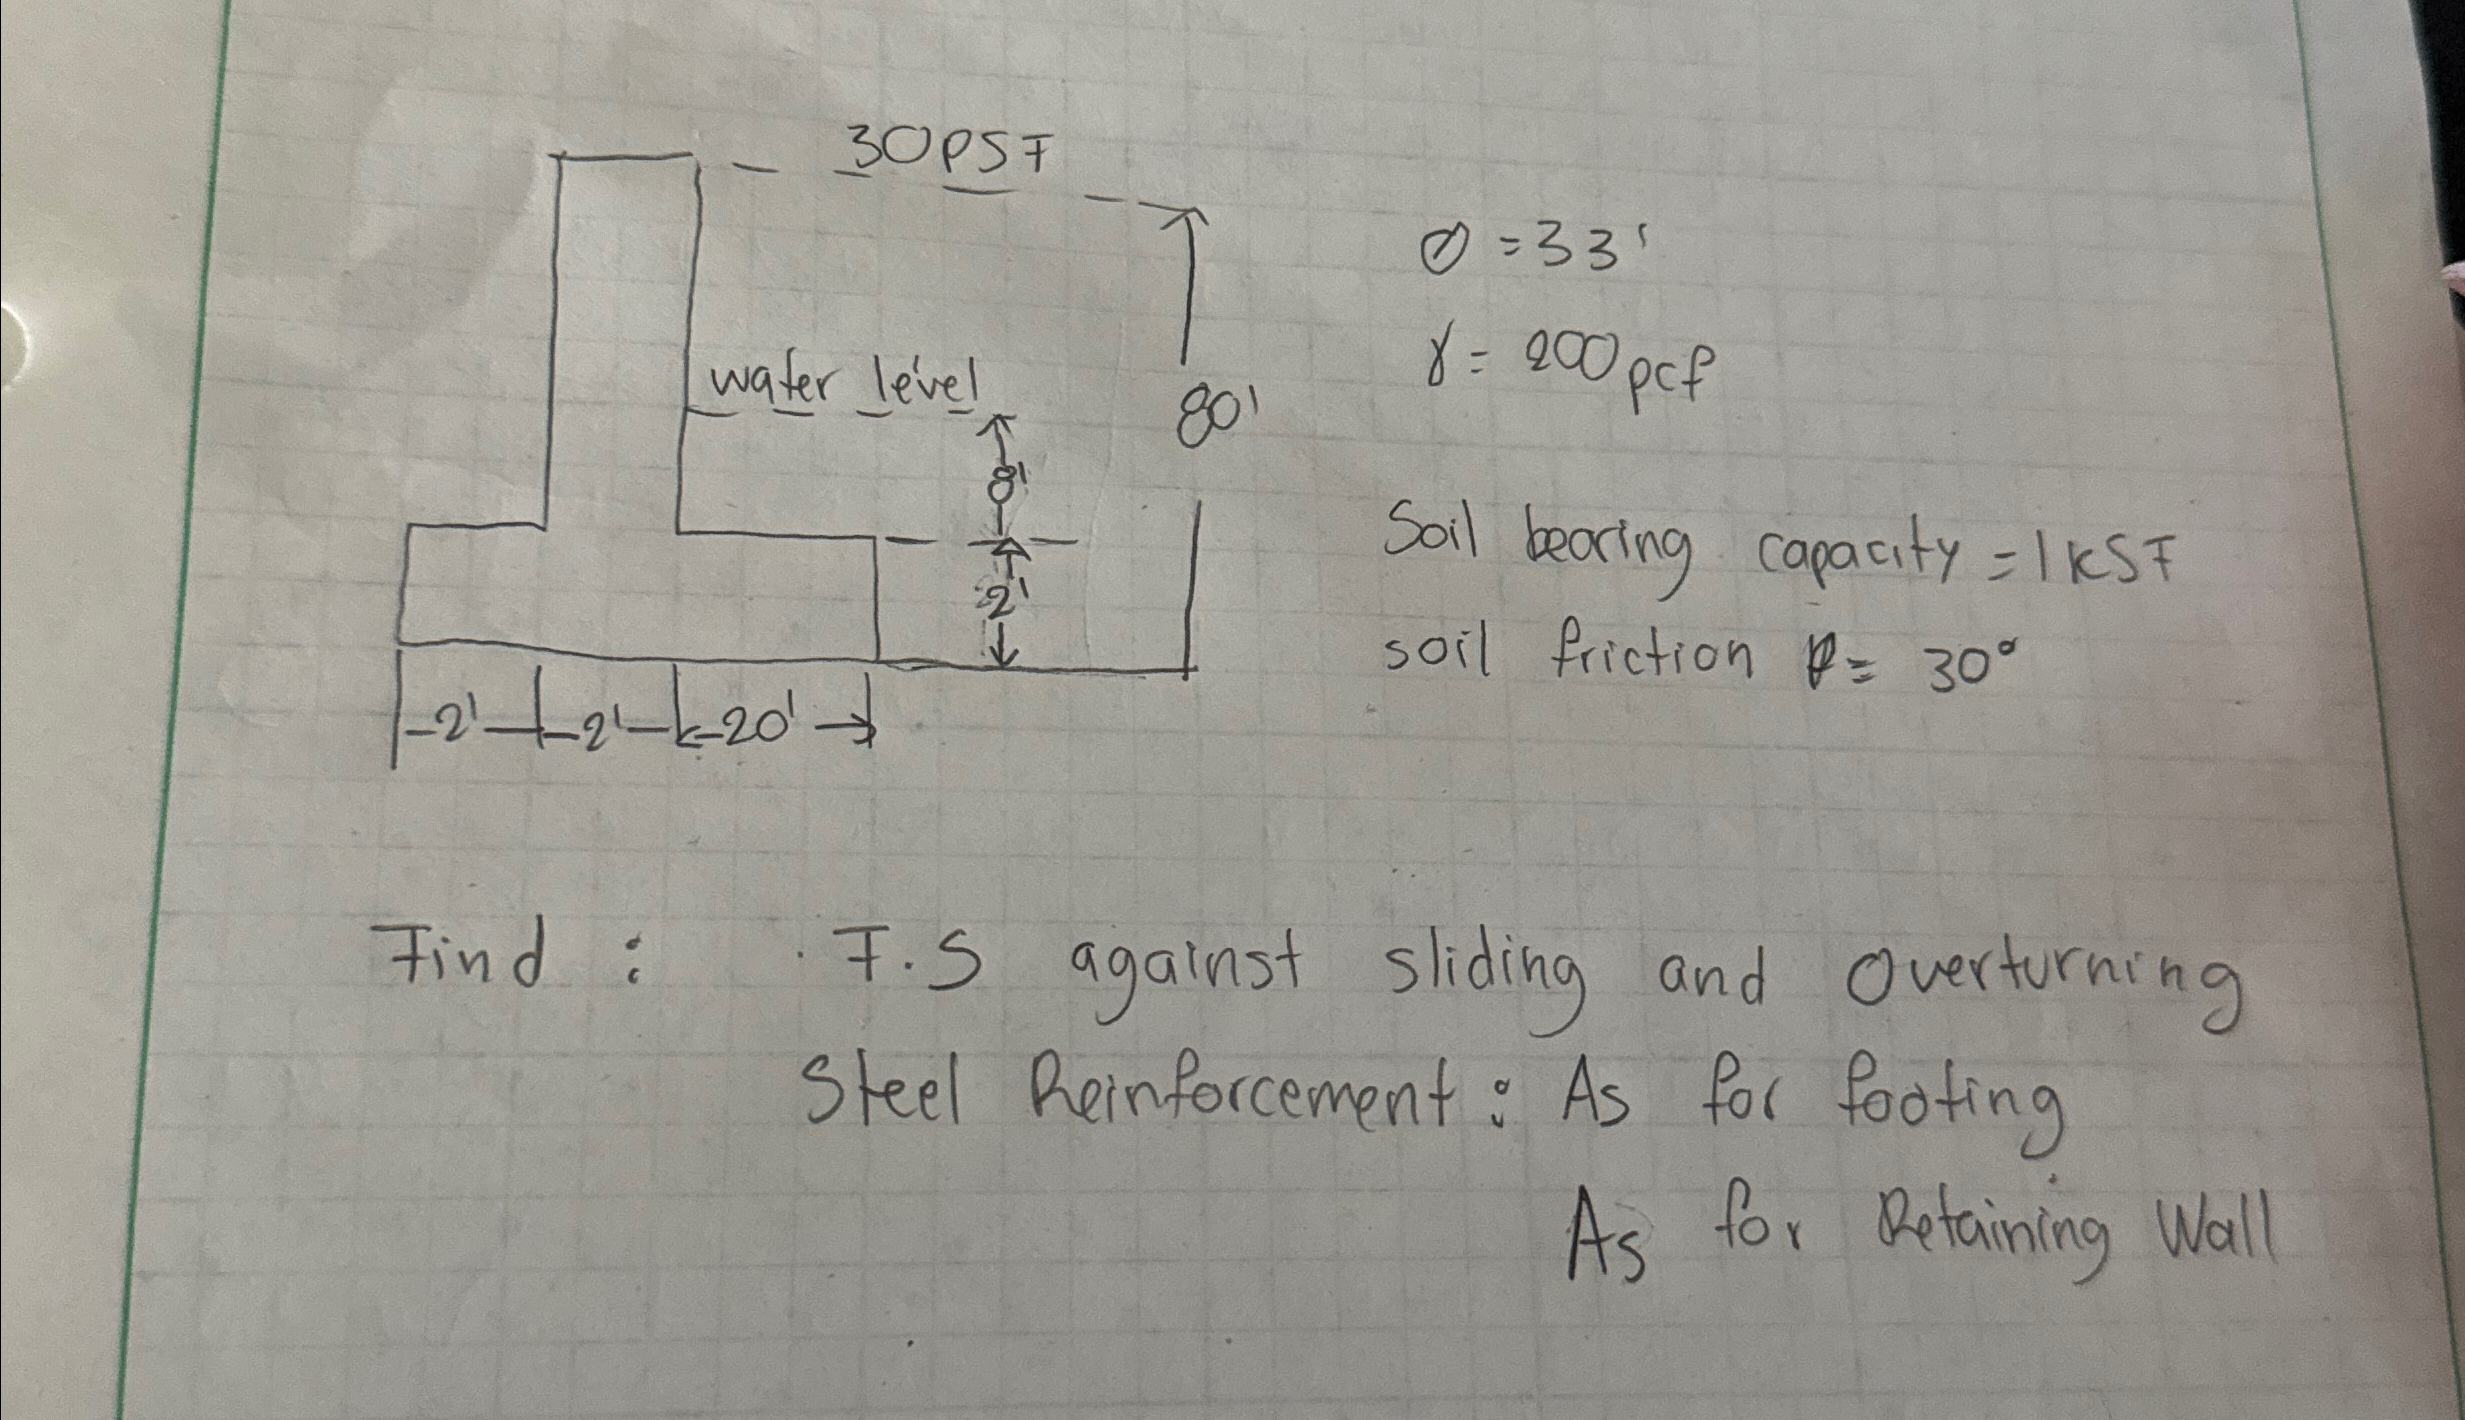 30PSF
Ø = 33'
water level
γ = 200 pcf
80'
8'
Soil bearing capacity = 1 KSF
2'
soil friction = 30°
2' 2' 20'
Find : F.S against sliding and Overturning
Steel Reinforcement : As for footing
As for Retaining Wall